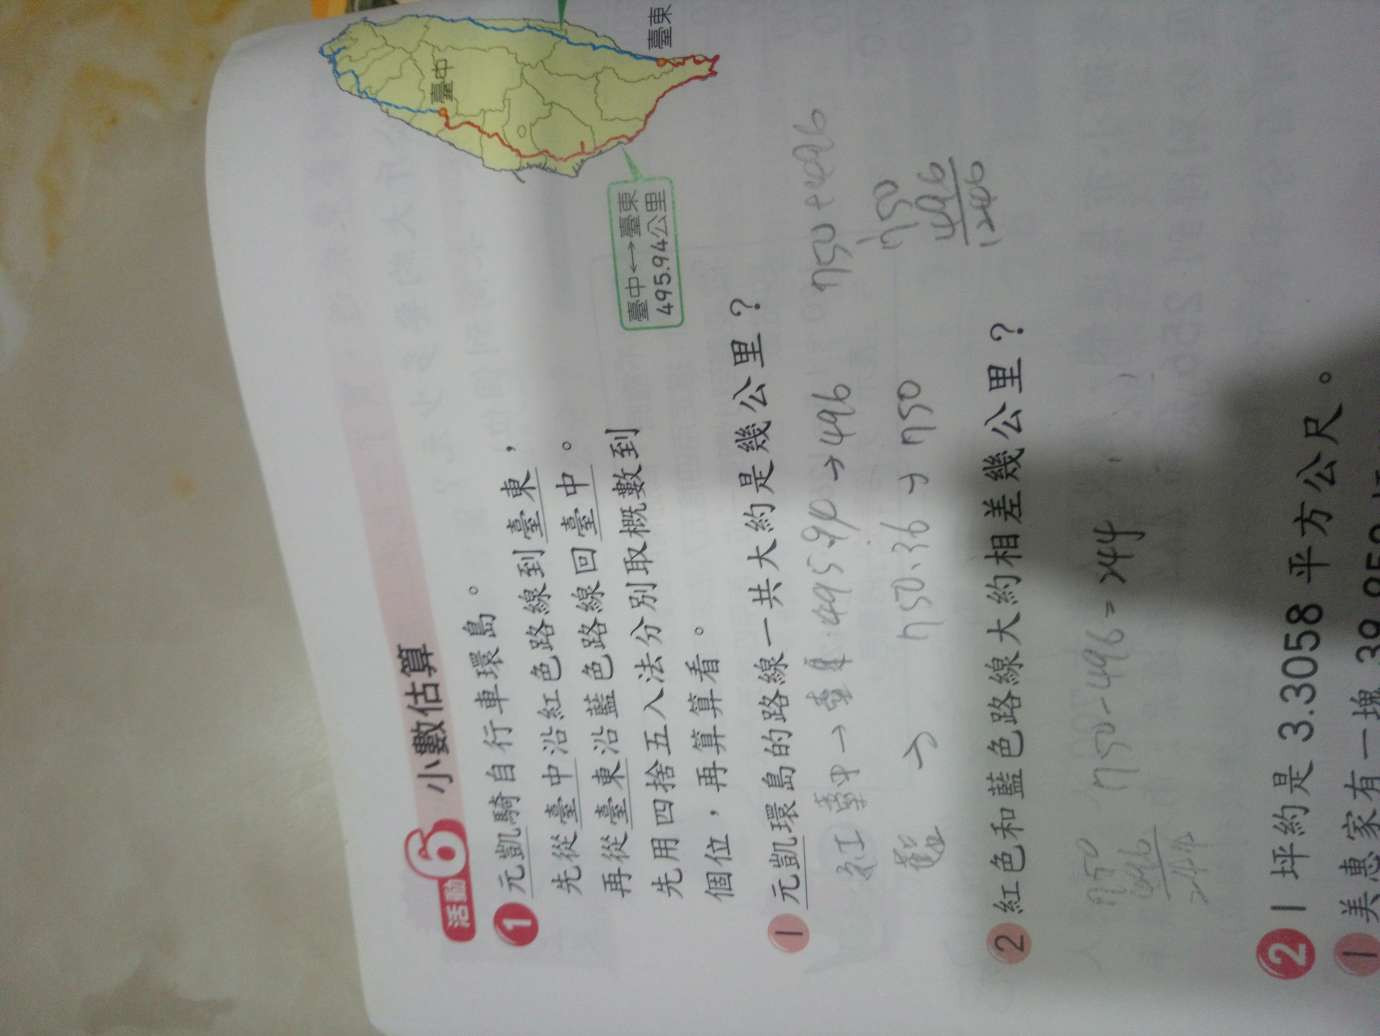 活動6 小數估算
1 元凱騎自行車環島。
先從臺中沿紅色路線到臺東，
再從臺東沿藍色路線回臺中。
先用四捨五入法分別取概數到
個位，再算算看。
臺中
臺東
臺中⟷臺東
495.94公里
1 元凱環島的路線一共大約是幾公里？
紅 臺中→臺東:495.90→496
750+496
藍 → 750.36→750
750
496
2 紅色和藍色路線大約相差幾公里？
750-496=244
750
496
244
2 1坪約是3.3058平方公尺。
1 美惠家有一塊